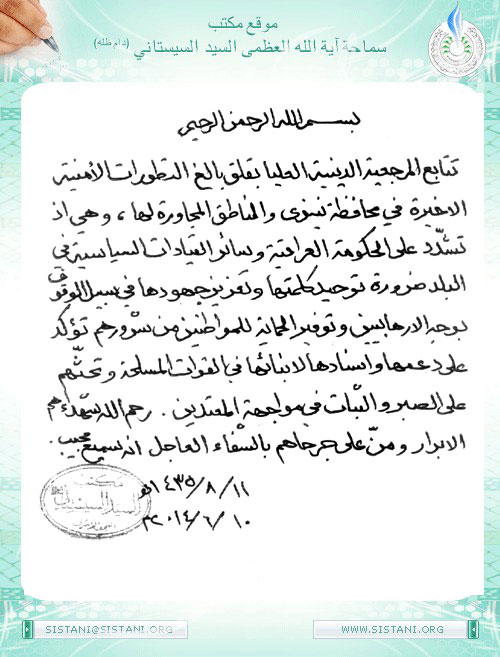 موقع مكتب
سماحة آية الله العظمى السيد السيستاني (دام ظله)
بسم الله الرحمن الرحيم
تتابع المرجعية الدينية العليا بقلق بالغ التطورات الأمنية
الاخيرة في محافظة نينوى والمناطق المجاورة لها، وهي اذ
تشدّد على الحكومة العراقية وسائر القيادات السياسية في
البلد ضرورة توحيد كلمتها وتعزيز جهودها في سبيل الوقوف
بوجه الارهابيين وتوفير الحماية للمواطنين من شرورهم تؤكد
على دعمها واسنادها لابنائها في القوات المسلحة وتحثّهم
على الصبر والثبات في مواجهة المعتدين. رحم الله شهداءهم
الابرار ومنّ على جرحاهم بالشفاء العاجل انه سميع مجيب.
١١/٨/١٤٣٥هـ
١٠/٦/٢٠١٤م
مكتب
السيد السيستاني
النجف الاشرف
SISTANI@SISTANI.ORG
WWW.SISTANI.ORG